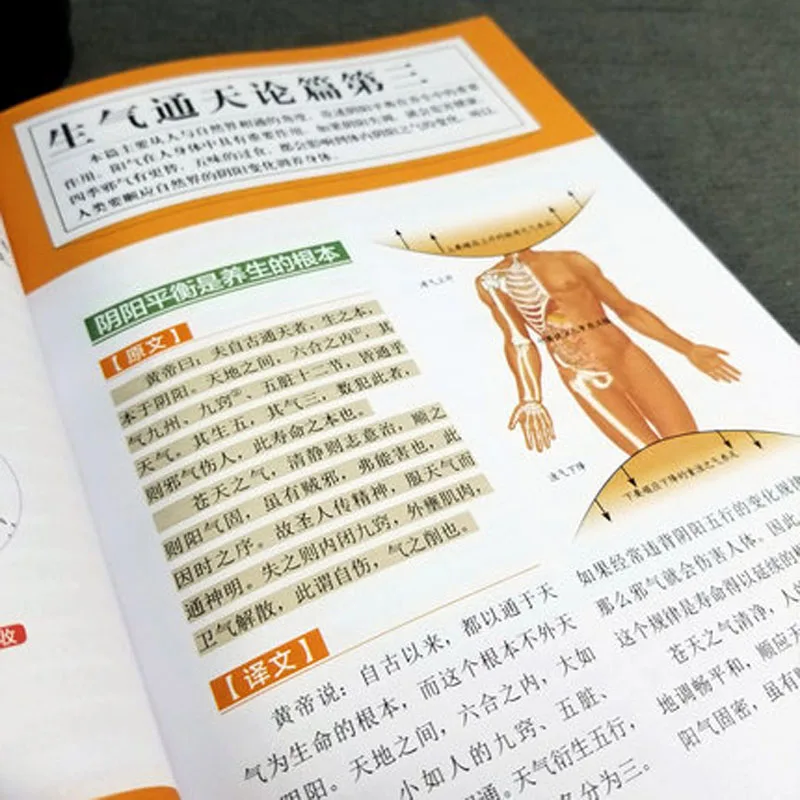 生气通天论篇第三
本篇主要从人与自然界相通的角度，论述阴阳平衡在养生中的重要
作用。阳气在人身体中具有重要作用，如果阴阳失调，就会危害健康。
四季邪气有更替，五味的过食，都会影响到体内阴阳之气的变化，所以
人类要顺应自然界的阴阳变化调养身体。
阴阳平衡是养生的根本
【原文】
黄帝曰：夫自古通天者，生之本，
本于阴阳。天地之间，六合之内，其
气九州、九窍、五脏十二节，皆通乎
天气。其生五，其气三，数犯此者，
则邪气伤人，此寿命之本也。
苍天之气，清静则志意治，顺之
则阳气固，虽有贼邪，弗能害也，此
因时之序。故圣人传精神，服天气而
通神明。失之则内闭九窍，外壅肌肉，
卫气解散，此谓自伤，气之削也。
【译文】
黄帝说：自古以来，都以通于天
气为生命的根本，而这个根本不外天
阴阳。天地之间，六合之内，大如
小如人的九窍、五脏、
通。天气衍生五行，
分为三。
清气上升
浊气下降
如果经常违背阴阳五行的变化规律
那么邪气就会伤害人体。因此，
这个规律是寿命得以延续的根
苍天之气清净，人的
地调畅平和，顺应天
阳气固密，虽有贼
收